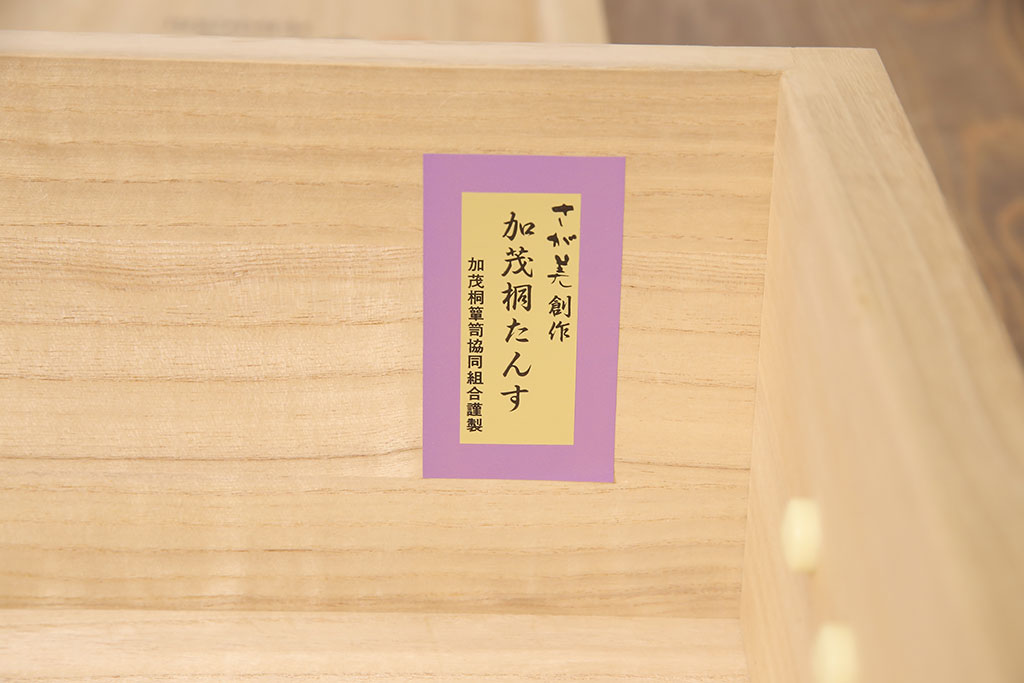 さが美創作
加茂桐たんす
加茂桐簞笥協同組合謹製